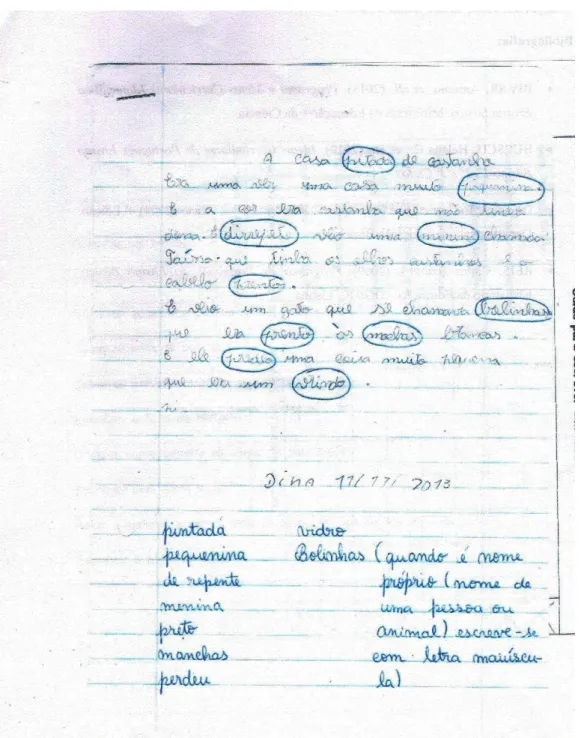 A casa pitada de castanha
Era uma vez uma casa muito piquenina.
E a cor era castanha que não tinha
dona. E direpet veio uma minina chamada
que tinha os olhos e o
cabelo prento.
E veio um gato que se chamava bolinhas
que era prento às machas brancas.
E ele predeu uma coisa muito
que era um vrindo.
Dina 11/11/2013
pintada vidro
pequenina Bolinhas (quando é nome
de repente próprio (nome de
menina uma pessoa ou
preto animal) escreve-se
manchas com letra maiúscu-
perdeu la)